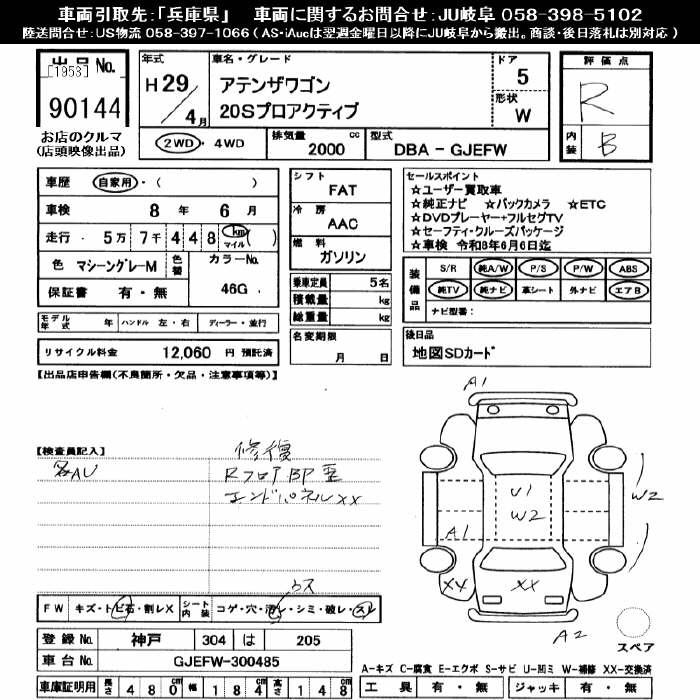 車両引取先:｢兵庫県｣ 車両に関するお問合せ:JU岐阜 058-398-5102
陸送問合せ:US物流 058-397-1066 ( AS･iAucは翌週金曜日以降にJU岐阜から搬出。商談・後日落札は別対応 )
出品 No.
[1953]
90144
お店のクルマ
(店頭映像出品)
年式 車名・グレード ドア 評価点
H 29 / 4月 アテンザワゴン 5
20Sプロアクティブ 形状 W
R
内装 B
2WD・4WD 排気量 2000 cc 型式 DBA - GJEFW
車歴 自家用・( )
車検 8 年 6 月
走行・5万7千448 km マイル ( )
色 マシーングレーM 色替 カラーNo. 46G
保証書 有・無
モデル年式 年 ハンドル 左・右 ディーラー・並行
リサイクル料金 12,060 円 預託済
シフト FAT
冷房 AAC
燃料 ガソリン
乗車定員 5名
積載量 kg
総重量 kg
名変期限 月 日
セールスポイント
☆ユーザー買取車
☆純正ナビ ☆バックカメラ ☆ETC
☆DVDプレーヤー+フルセグTV
☆セーフティ・クルーズパッケージ
☆車検 令和8年6月6日迄
装備品 S/R 純A/W P/S P/W ABS
純TV 純ナビ 革シート 外ナビ エアB
ナビ型番:
後日品
地図SDカード
【出品店申告欄(不良箇所・欠品・注意事項等)】
【検査員記入】
各AU
修復
RフロアBP歪
エンドパネルXX
A1
U1
W2
A1
W2
XX
XX
A2
スペア
ウス
FW キズ・トビ石・割レX シート内装 コゲ・穴・汚レ・シミ・破レ・スレ
登録 No. 神戸 304 は 205
車台 No. GJEFW-300485
車庫証明用 長さ 480cm 幅 184cm 高さ 148cm
A-キズ C-腐食 E-エクボ S-サビ U-凹ミ W-補修 XX-交換済
工具 有・無 ジャッキ 有・無